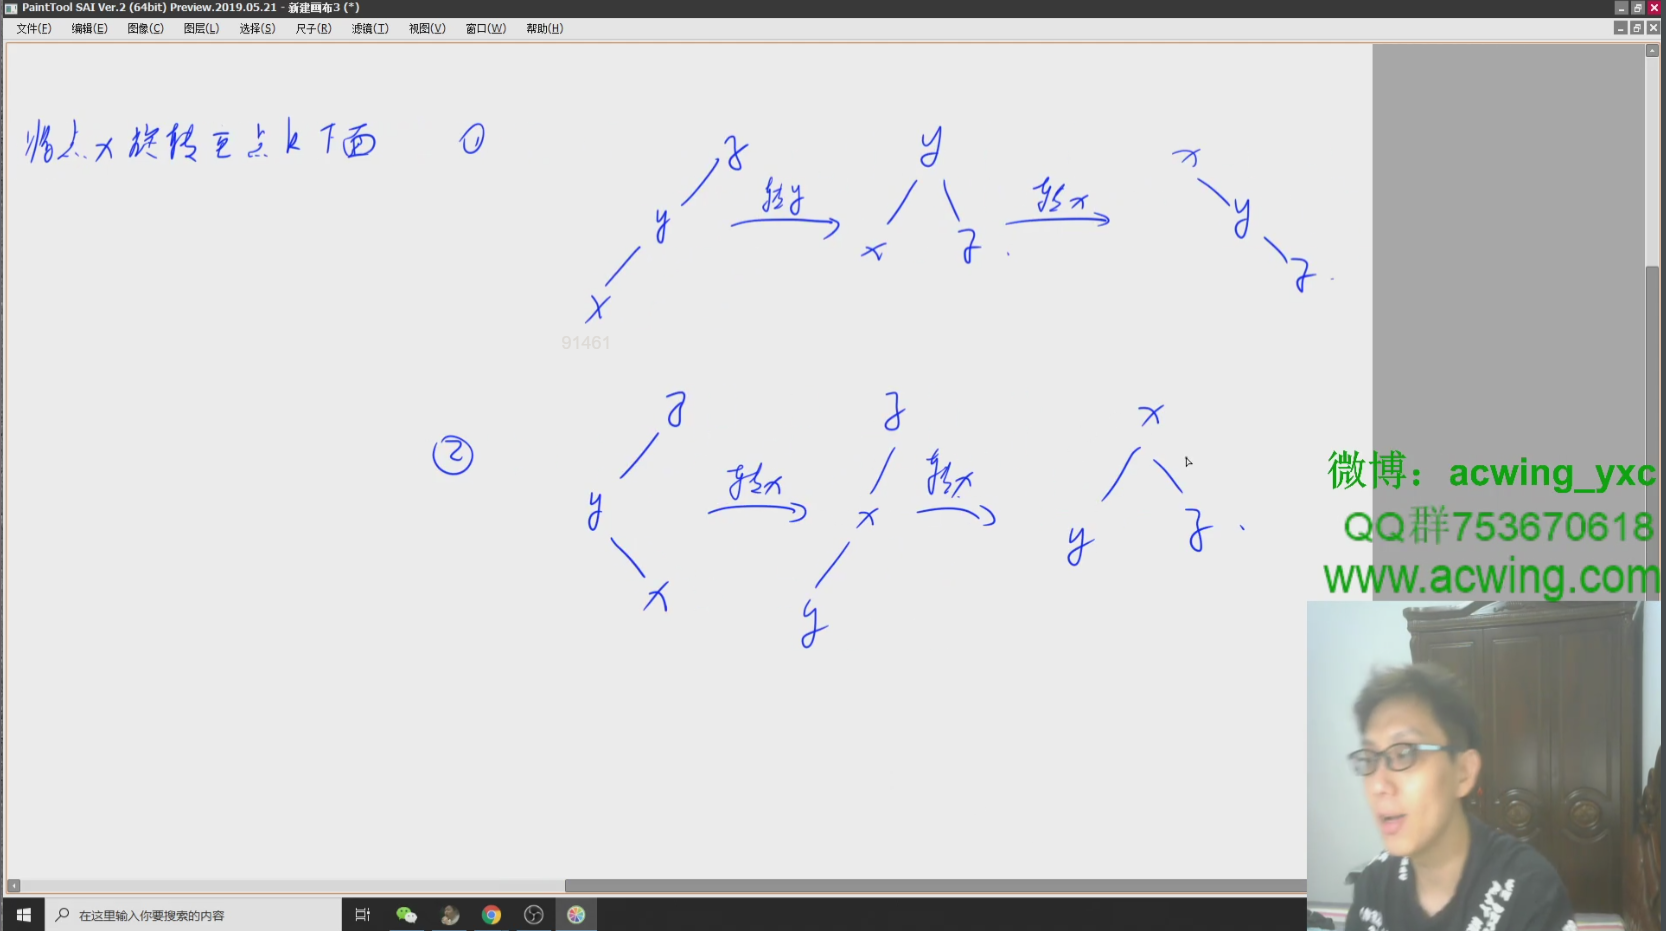 PaintTool SAI Ver.2 (64bit) Preview.2019.05.21 - 新建画布3 (*)
文件(F) 编辑(E) 图像(C) 图层(L) 选择(S) 尺子(R) 滤镜(T) 视图(V) 窗口(W) 帮助(H)
将点x旋转至点k下面 ①
z
y
x
转y
y
x z
转x
x
y
z
91461
②
z
y
x
转x
z
x
y
转x
x
y z
微博：acwing_yxc
QQ群753670618
www.acwing.com
在这里输入你要搜索的内容